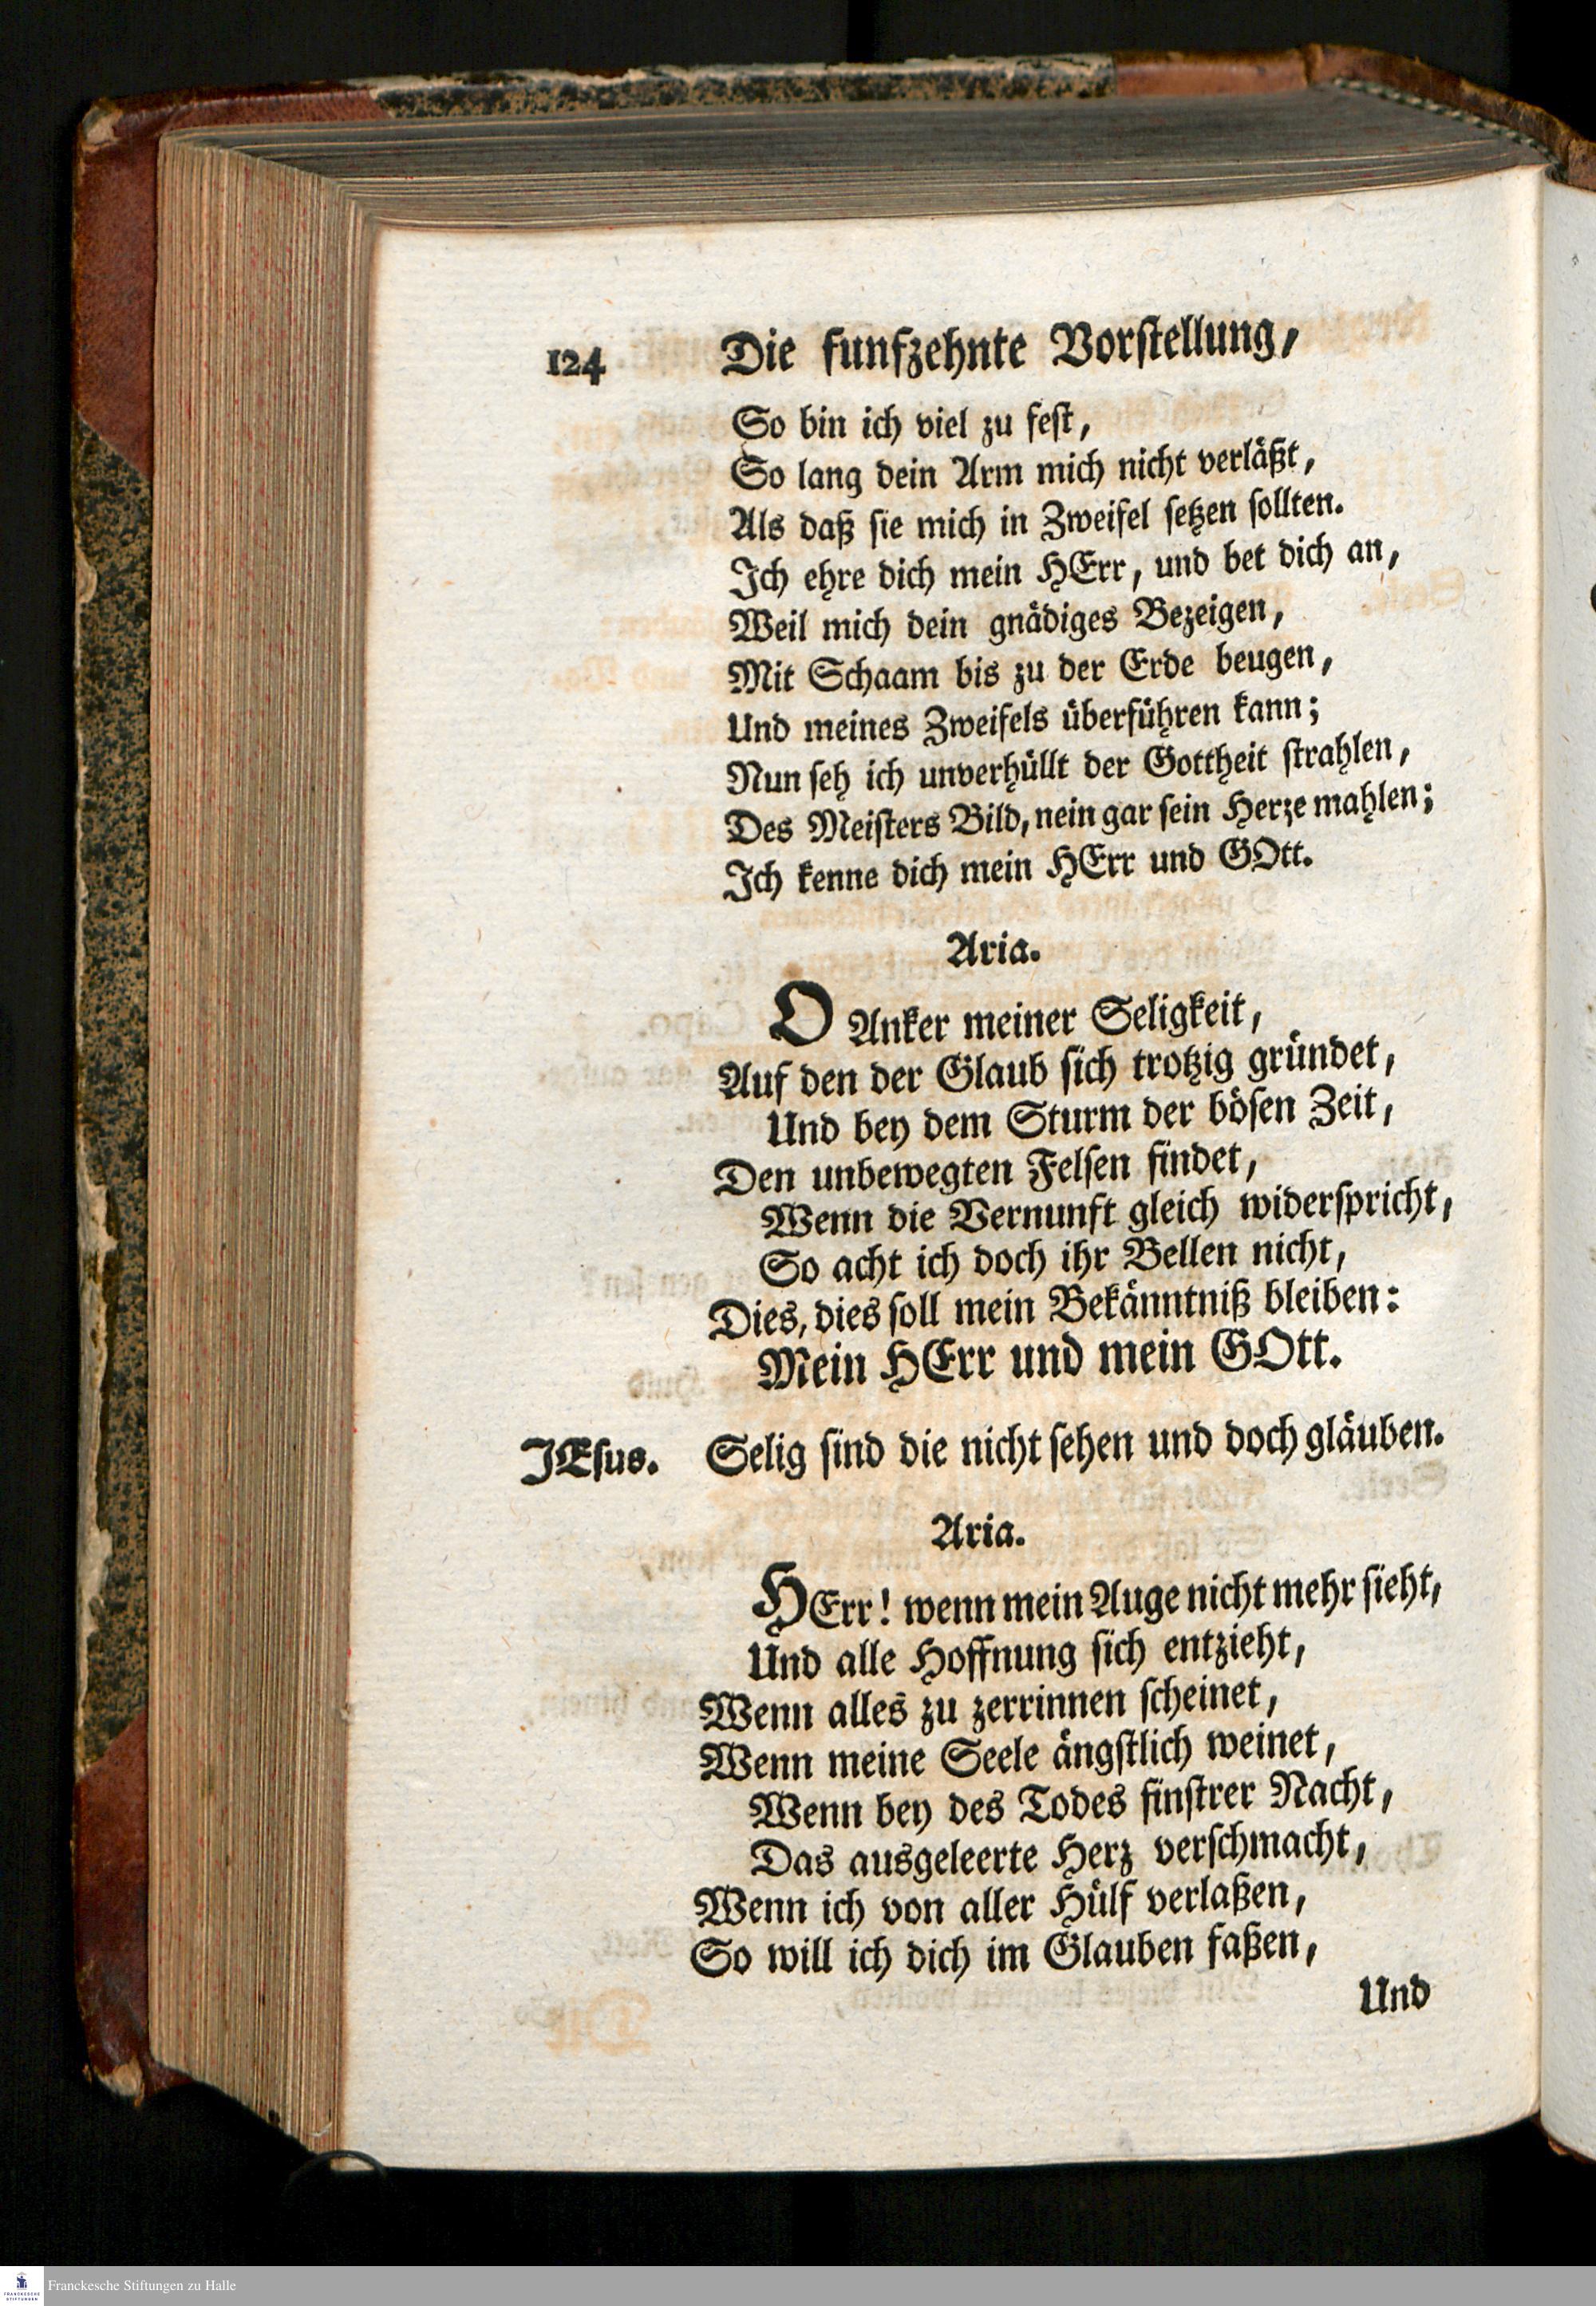 124 Die funfzehnte Vorstellung,
So bin ich viel zu fest,
So lang dein Arm mich nicht verläßt,
Als daß sie mich in Zweifel setzen sollten.
Ich ehre dich mein HErr, und bet dich an,
Weil mich dein gnädiges Bezeigen,
Mit Schaam bis zu der Erde beugen,
Und meines Zweifels überführen kann;
Nun seh ich unverhüllt der Gottheit strahlen,
Des Meisters Bild, nein gar sein Herze mahlen;
Ich kenne dich mein HErr und GOtt.
Aria.
O Anker meiner Seligkeit,
Auf den der Glaub sich trotzig gründet,
Und bey dem Sturm der bösen Zeit,
Den unbewegten Felsen findet,
Wenn die Vernunft gleich widerspricht,
So acht ich doch ihr Bellen nicht,
Dies, dies soll mein Bekänntniß bleiben:
Mein HErr und mein GOtt.
JEsus. Selig sind die nicht sehen und doch gläuben.
Aria.
HErr! wenn mein Auge nicht mehr sieht,
Und alle Hoffnung sich entzieht,
Wenn alles zu zerrinnen scheinet,
Wenn meine Seele ängstlich weinet,
Wenn bey des Todes finstrer Nacht,
Das ausgeleerte Herz verschmacht,
Wenn ich von aller Hülf verlaßen,
So will ich dich im Glauben faßen,
Und
FRANCKESCHE STIFTUNGEN
Franckesche Stiftungen zu Halle